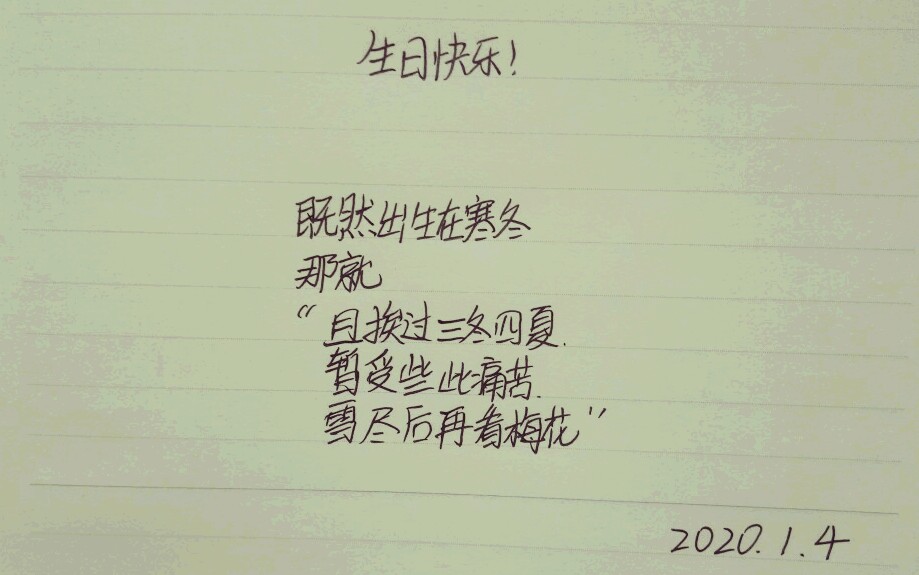 生日快乐！
既然出生在寒冬
那就
“且挨过三冬四夏.
暂受些此痛苦.
雪尽后再看梅花”
2020.1.4